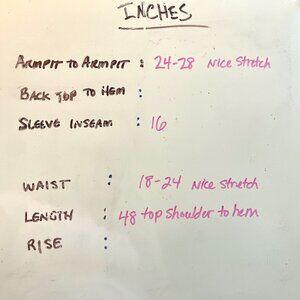 INCHES
ARMPIT TO ARMPIT : 24-28 Nice Stretch
BACK TOP TO HEM :
SLEEVE INSEAM : 16
WAIST : 18-24 Nice stretch
LENGTH : 48 top shoulder to hem
RISE :